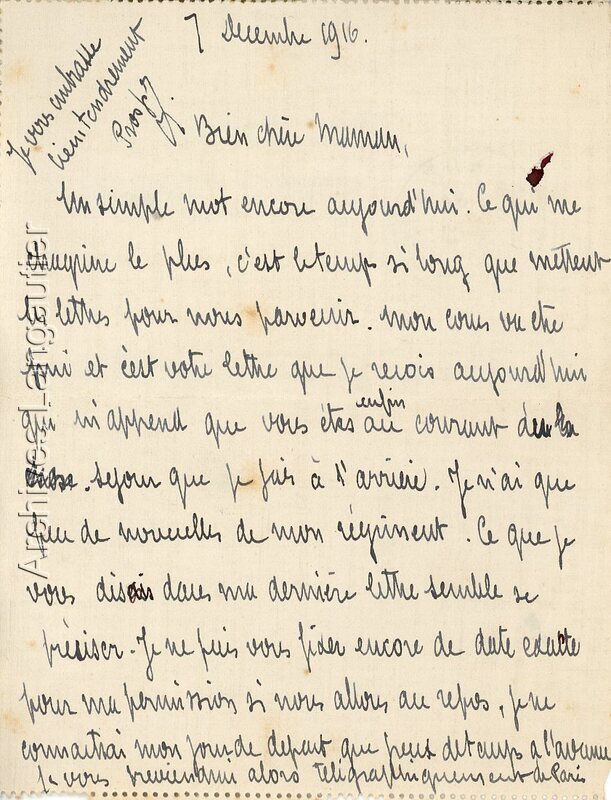 7 Decembre 1916.
Je vous embrasse
bien tendrement
Prosper
Bien chère Maman,
Un simple mot encore aujourd'hui. Ce qui me
chagrine le plus, c'est le temps si long que mettent
les lettres pour nous parvenir. Mon cours va être
fini et c'est votre lettre que je reçois aujourd'hui
qui m'apprend que vous êtes enfin au courant
sejour que je fais à l'arrière. Je n'ai que
peu de nouvelles de mon régiment. Ce que je
vous disais dans ma dernière lettre semble se
préciser. Je ne puis vous fixer encore de date exacte
pour ma permission si nous allons au repos, je ne
connaitrai mon jour de depart que peu de temps a l'avance
Je vous previendrai alors télégraphiquement de Paris
Archives Langautier